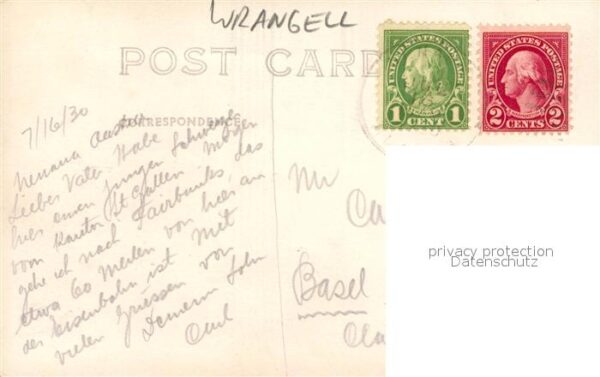 WRANGELL
POST CARD
UNITED STATES POSTAGE
1 CENT 1
UNITED STATES POSTAGE
2 CENTS 2
CORRESPONDENCE
7/16/30
Nenana
Lieber Vater. Habe
hier einen jungen
vom Kanton St Gallen. Morgen
gehe ich nach Fairbanks, das
etwa 60 Meilen von hier an
der Eisenbahn ist. Mit
vielen Grüssen von
Deinem Sohn
Mr
Ca
Basel
privacy protection
Datenschutz